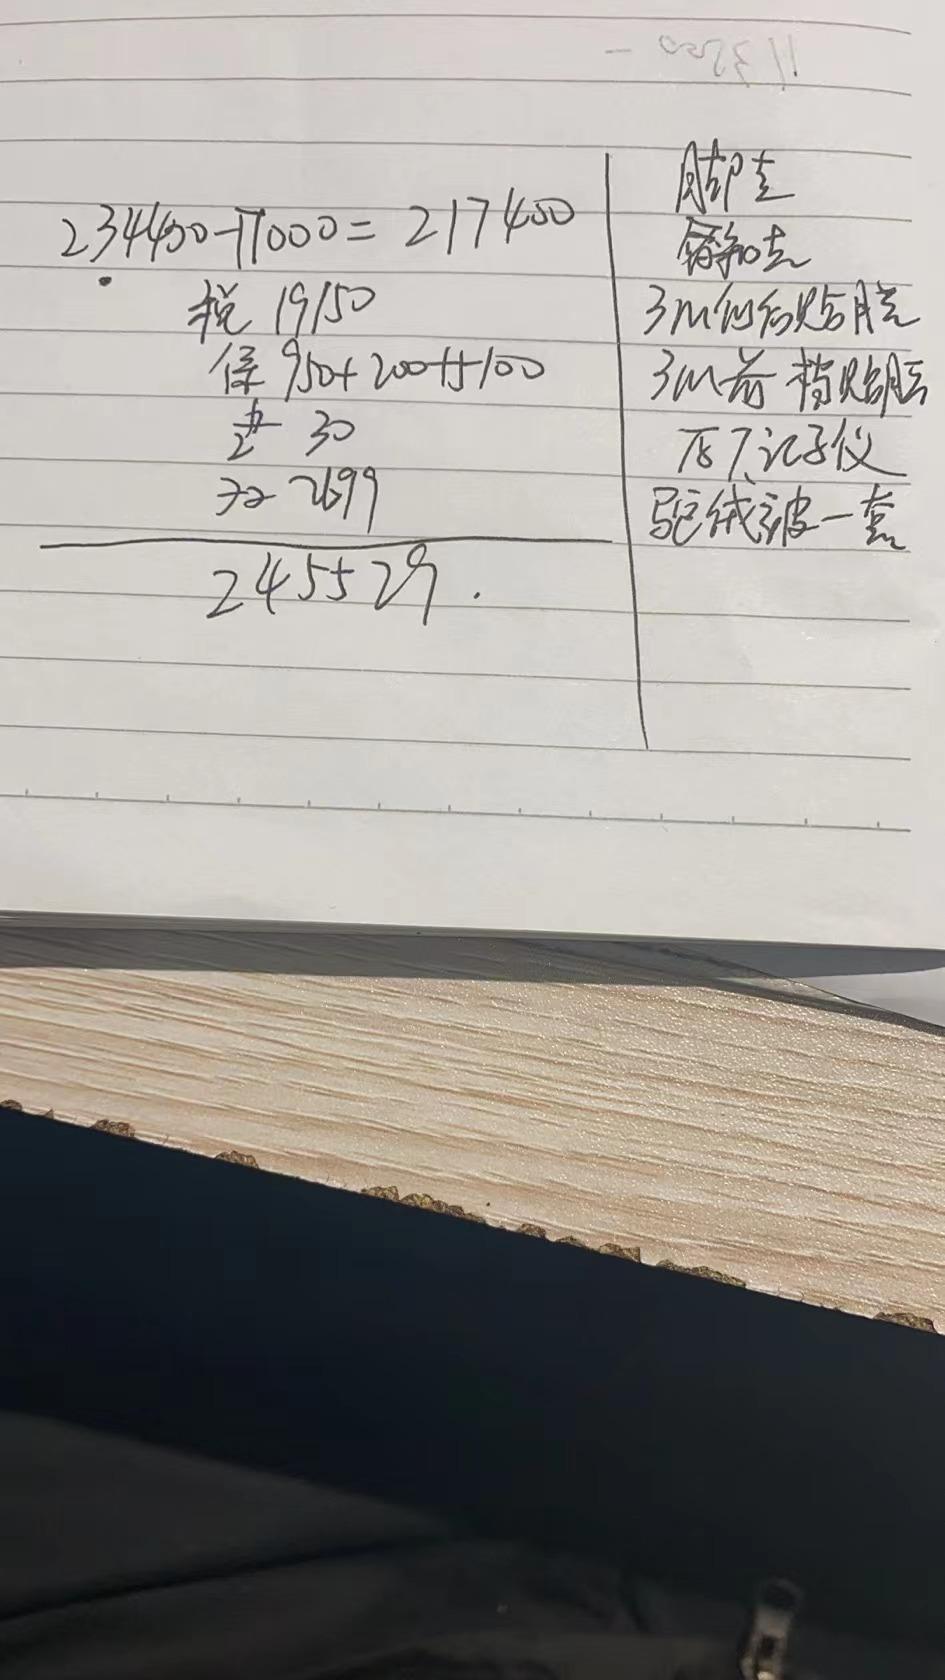 113500 -
234400-17000= 217400
税 19150
保 950+200+5100
盘 30
2699
245529.
脚垫
3M侧后贴膜
3M前档贴膜
原厂记录仪
驼绒被一套